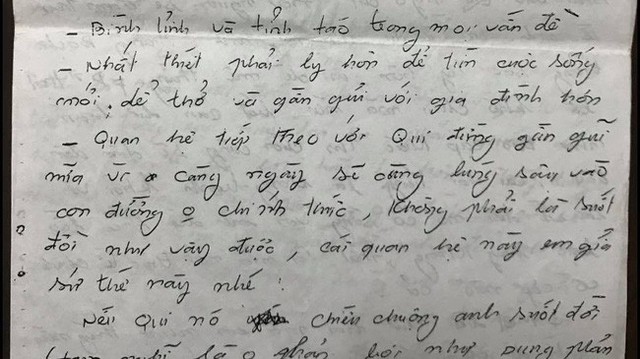 - Bình tỉnh và tỉnh táo trong mọi vấn đề
- Nhất thiết phải ly hôn để tìm cuộc sống
mới, dể thở và gần gũi với gia đình hơn
- Quan hê tiếp theo với Quí đừng gần gũi
nữa vì càng ngày sẽ càng lúng sâu vào
con đường o chính thức, không phải là suốt
đời như vậy được, cái quan hê này em giả
sử thế này nhé:
Nếu Quí nó chiều chuộng anh suốt đời
là o phải bởi như Dung